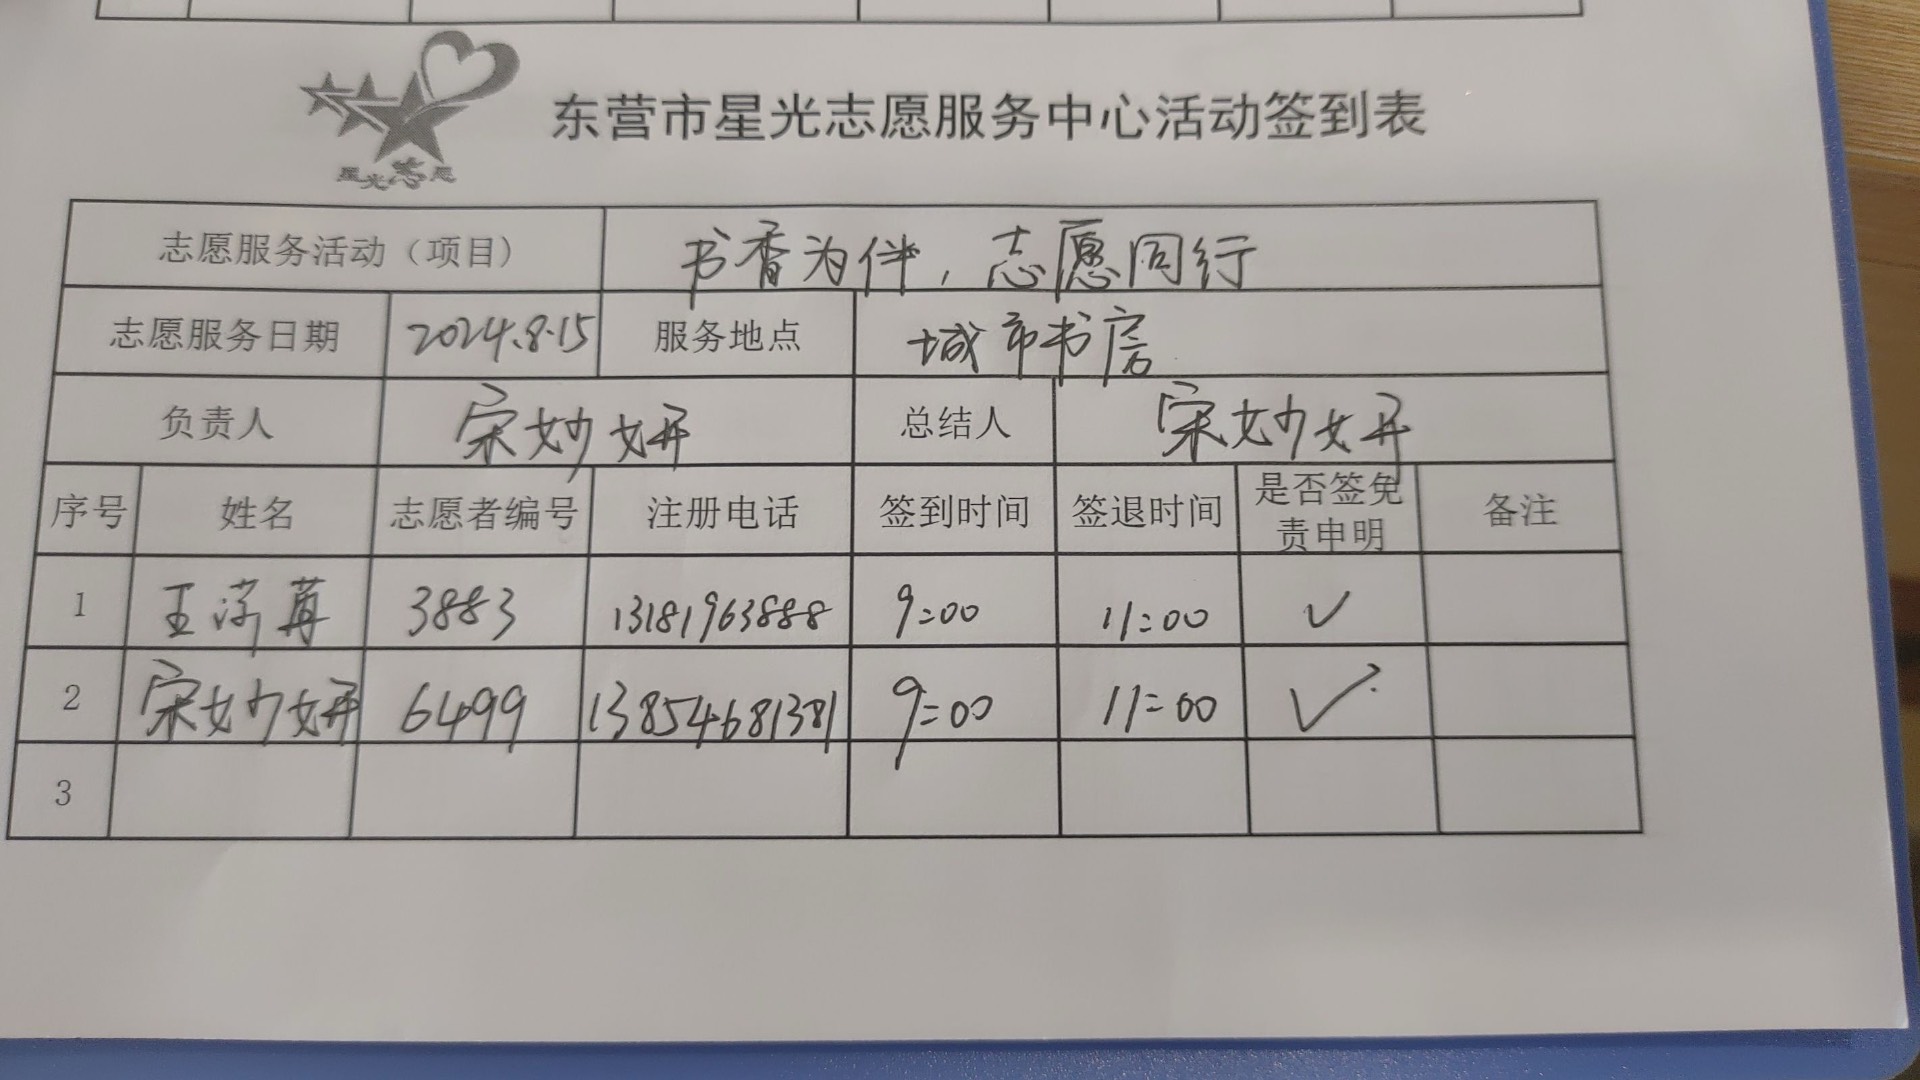 星光志愿
东营市星光志愿服务中心活动签到表
志愿服务活动（项目） 书香为伴，志愿同行
志愿服务日期 2024.8.15 服务地点 城市书房
负责人 宋妙妍 总结人 宋妙妍
序号 姓名 志愿者编号 注册电话 签到时间 签退时间 是否签免责申明 备注
1 王 3883 13181963888 9:00 11:00 ✓
2 宋妙妍 6499 13854681381 9:00 11:00 ✓
3